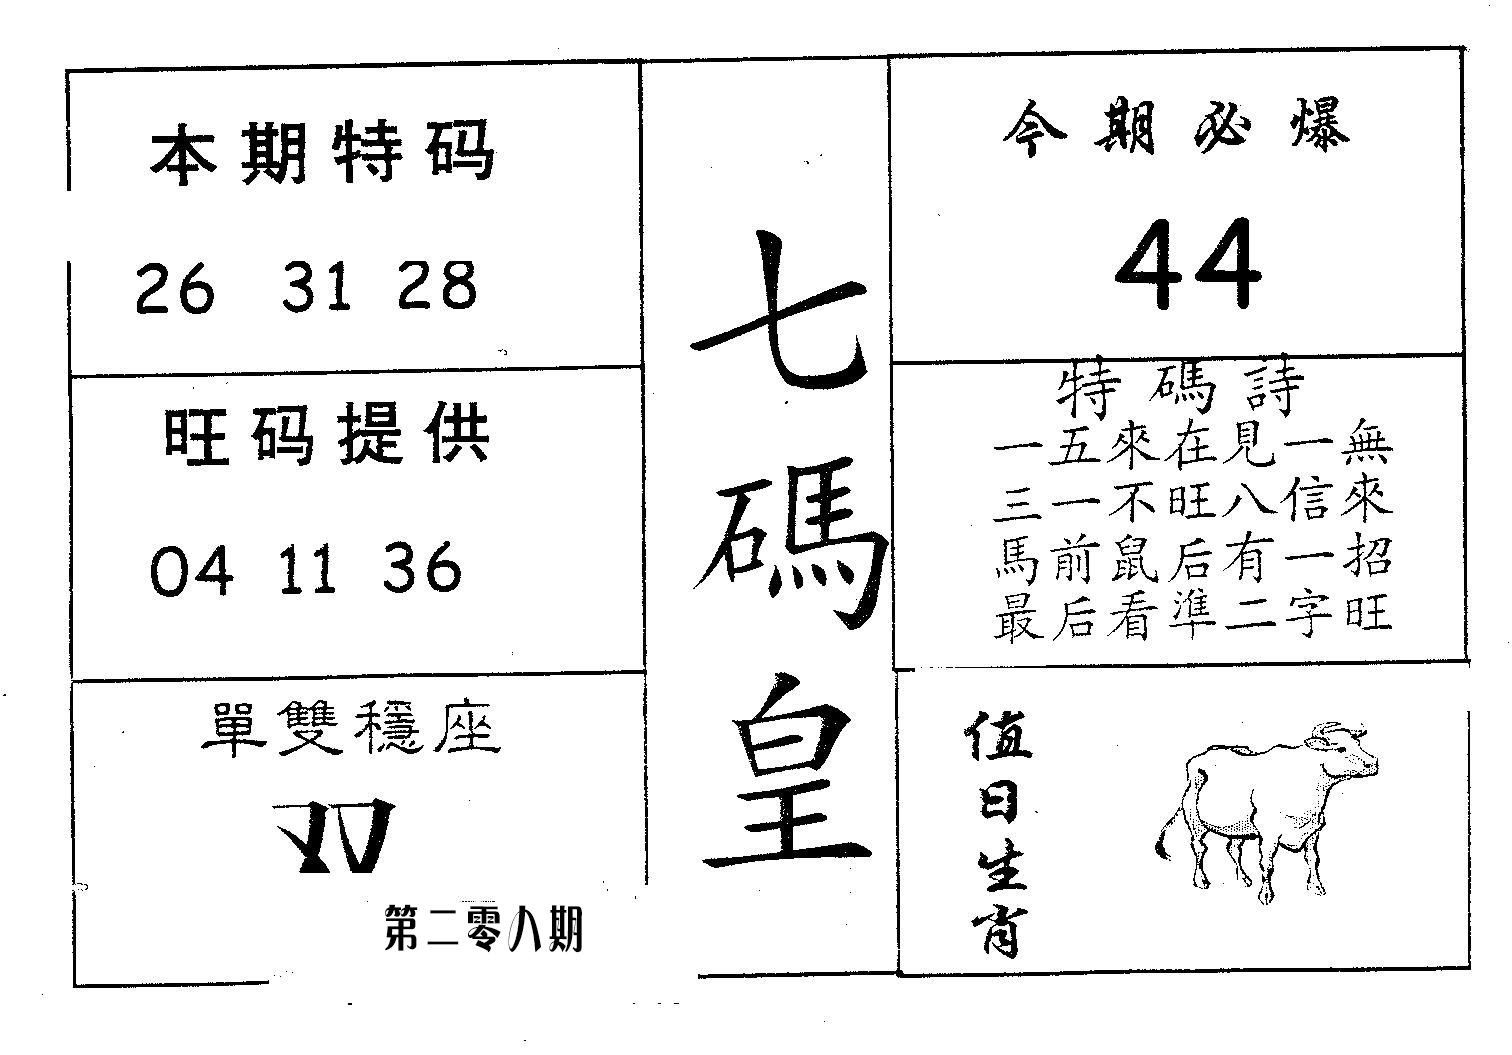 本期特码
26 31 28
旺码提供
04 11 36
單雙穩座
双
第二零八期
七碼皇
今期必爆
44
特碼詩
一五來在見一無
三一不旺八信來
馬前鼠后有一招
最后看準二字旺
值日生肖